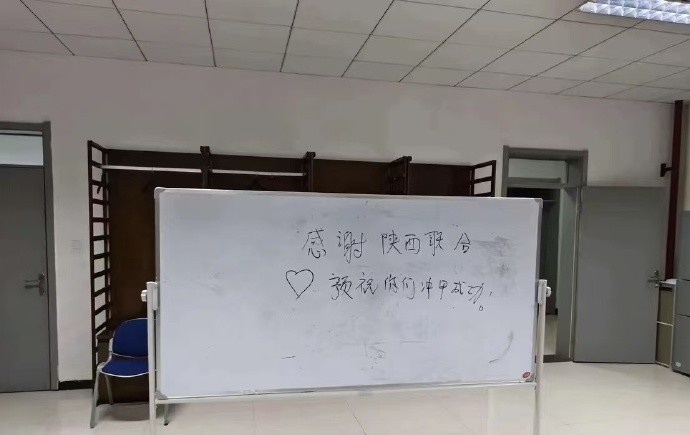 感谢陕西联合
♡ 预祝你们冲甲成功。